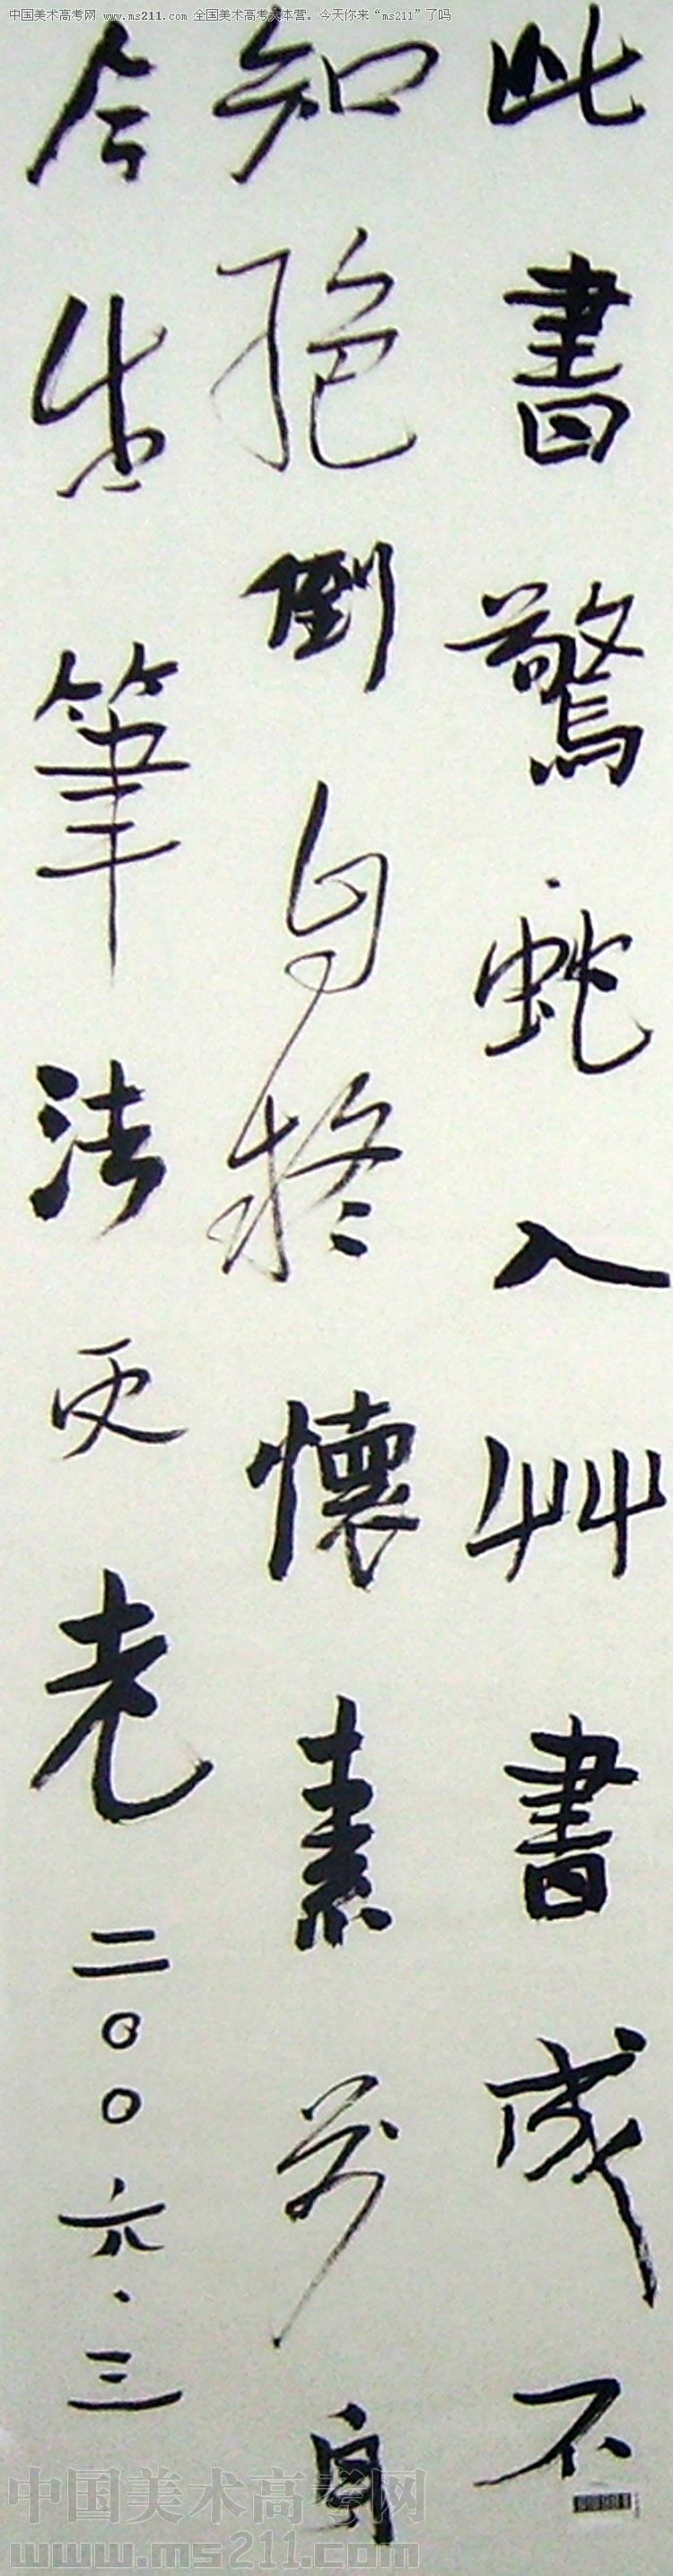 中国美术高考网 www.ms211.com 全国美术高考大本营。今天你来“ms211”了吗
此書驚蛇入艸書成不
知絕倒自懷素前身
今生筆法更老二〇〇六.三
中国美术高考网
www.ms211.com